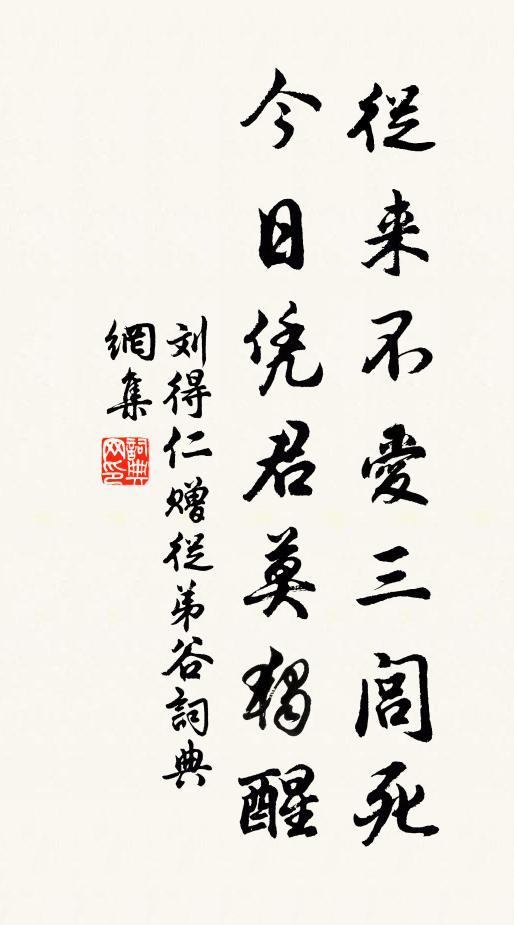 從来不愛三閭死
今日凭君莫獨醒
刘得仁赠從弟谷詞典
網集
詞典网印